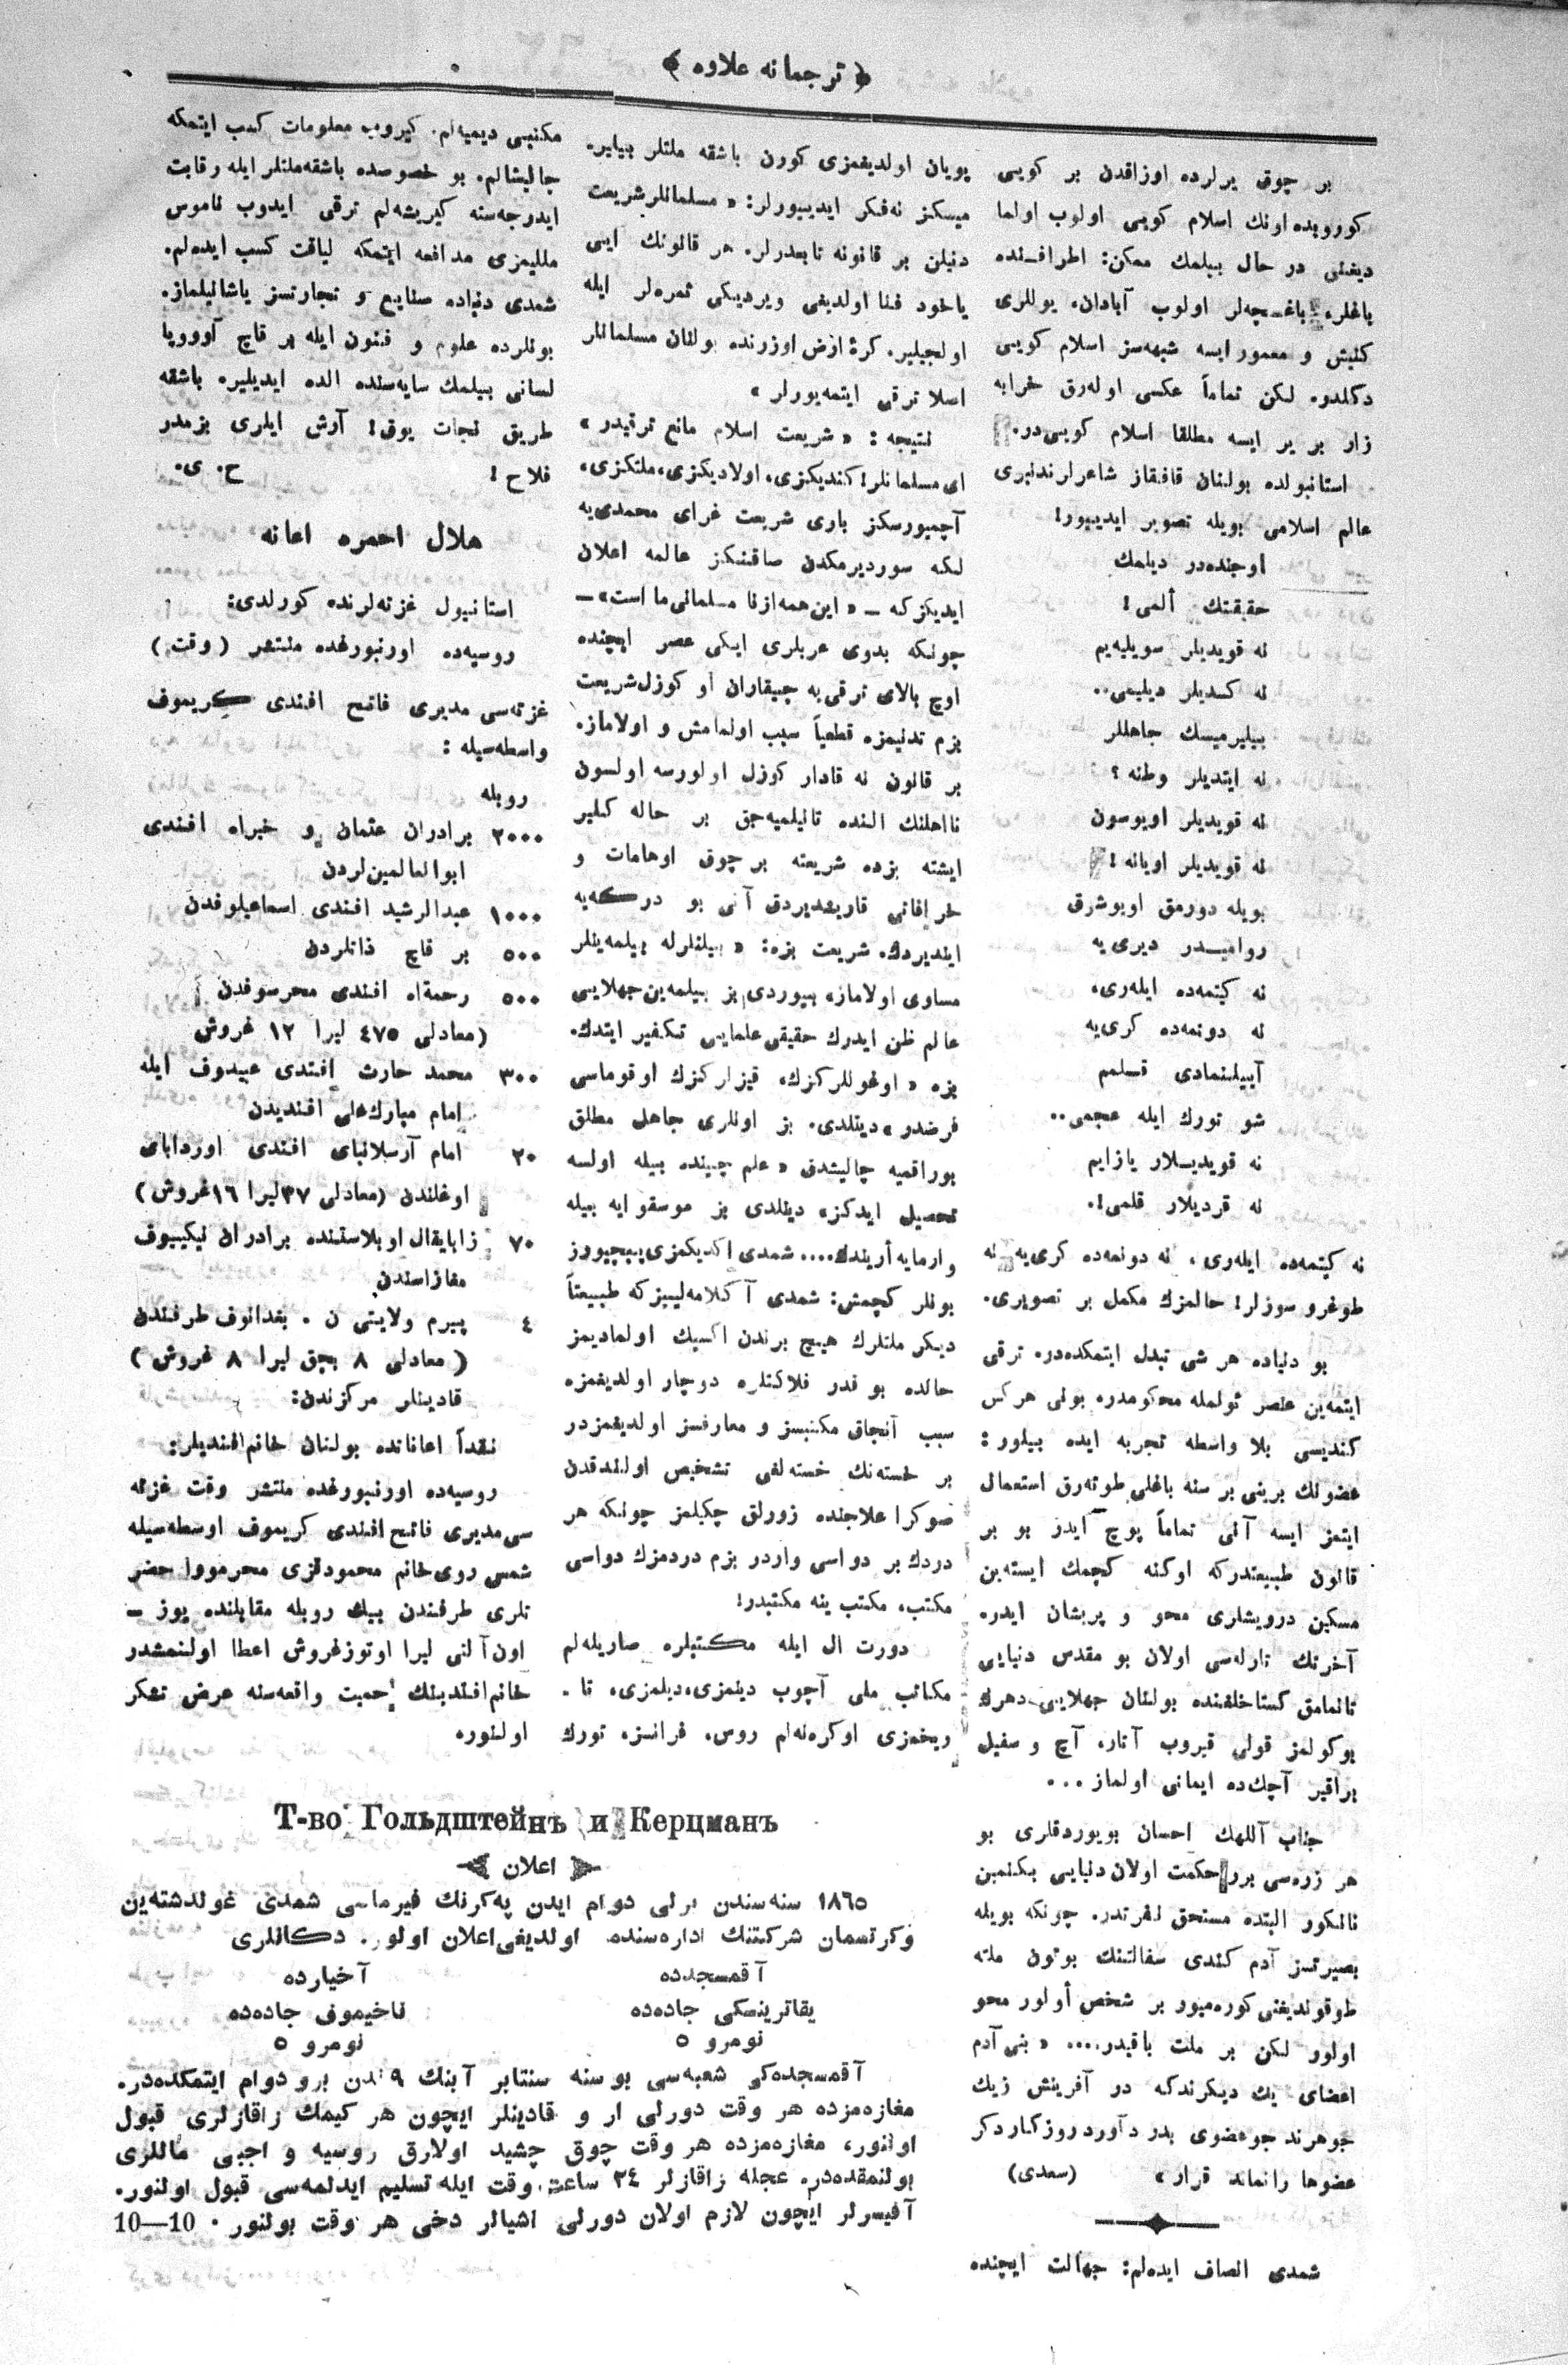 ﴿ ترجمانه علاوه ﴾
بر چوق يرلرده اوزاقدن بر كويى
كوروبده اونك اسلام كويى اولوب اولما
ديغنى در حال بيلمك ممكن: اطرافنده
باغلر، باغچه‌لر اولوب آبادان، يوللرى
كنيش و معمور ايسه شبهه‌سز اسلام كويى
دكلدر. لكن تماماً عكسى اوله‌رق خرابه
زار بر ير ايسه مطلقا اسلام كويى‌در.
استانبولده بولنان قافقاز شاعرلرندن‌برى
عالم اسلامى بويله تصوير ايدييور!
اوجنده‌در ديلمك
حقيقتك ألمى!
نه قويديلر سويليه‌يم
نه كسديلر ديليمى..
بيليرميسك جاهللر
نه ايتديلر وطنه ؟
نه قويديلر اويوسون
نه قويديلر اويانه !
بويله دورمق اويوشرق
رواميدر ديرى‌يه
نه كيتمه‌ده ايله‌رى،
نه دونمه‌ده كرى‌يه
آييلنمادى قسلمم
شو تورك ايله عجمى..
نه قويديلار يازايم
نه قرديلار قلمى!.
نه كيتمه‌ده ايله‌رى ، نه دونمه‌ده كرى‌يه نه
طوغرو سوزلر! حالمزك مكمل بر تصويرى.
بو دنياده هر شى تبدل ايتمكده‌در. ترقى
ايتمه‌ين عنصر ئولمله محكومدر. بونى هركس
كنديسى بلا واسطه تجربه ايده بيلور:
عضونك برينى بر سنه باغلى طوته‌رق استعمال
ايتمز ايسه آنى تماماً پوچ ايدر بو بر
قانون طبيعتدركه اوكنه كچمك ايسته‌ين
مسكين درويشلرى محو و پريشان ايدر.
آخرتك تارله‌سى اولان بو مقدس دنيايى
تانمامق كستاخلغنده بولنان جهلايى دهرك
بوكولمز قولى قيروب آتار، آچ و سفيل
براقير آچك‌ده ايمانى اولماز...
جناب آللهك احسان بويوردقلرى بو
هر زره‌سى بررحكمت اولان دنيايى بكنمين
نانكور البته مستحق نفرتدر. چونكه بويله
بصيرتسز آدم كندى سفالتنك بوتون ملته
طوقونديغنى كوره‌ميور بر شخص أولور محو
اولور لكن بر ملت باقيدر.... « بنى آدم
اعضاى يك ديكرندكه در آفرينش زيك
جوهرند جوعضوى بدرد آورد روزكار دكر
عضوها رانماند قرار » (سعدى)
شمدى انصاف ايده‌لم: جهالت ايچنده
پويان اولديغمزى كورن باشقه ملتلر بيلير.
ميسكز نه‌فكر ايدييورلر: « مسلمانلرشريعت
دنيلن بر قانونه تابعدرلر. هر قانونك ايى
ياخود فنا اولديغى ويرديكى ثمره‌لر ايله
اولچيلير. كرۀ ارض اوزرنده بولنان مسلمانلر
اسلا ترقى ايتمه‌يورلر »
نتيجه : « شريعت اسلام مانع ترقيدر »
اى مسلمانلر! كنديكزى، اولاديكزى، ملتكزى،
آچميورسكز بارى شريعت غراى محمدى‌يه
لكه سورديرمكدن صاقنكز عالمه اعلان
ايديكزكه ـ « اين همه‌ازنا مسلمانى‌ما است» ـ
چونكه بدوى عربلرى ايكى عصر ايچنده
اوچ بالاى ترقى‌يه چيقاران او كوزل‌شريعت
بزم تدنيمزه قطعياً سبب اولمامش و اولاماز.
بر قانون نه قادار كوزل اولورسه اولسون
نااهلنك الـنده تانيلميه‌جق بر حاله كلير
ايشته بزده شريعته بر چوق اوهامات و
خرافاتى قاريشديردق آنى بو دركه‌يه
اينديردك. شريعت بزه: « بيلنلرله بيلمه‌ينلر
مساوى اولاماز» بيوردى بز بيلمه‌ين‌جهلايى
عالم ظن ايدرك حقيقى علمايى تكفير ايتدك.
بزه « اوغوللركزك، قيزلركزك اوقوماسى
فرضدر » دينلدى. بز اونلرى جاهل مطلق
بوراقميه چاليشدق « علم چينده بيله اولسه
تحصيل ايدكز» دينلدى بز موسقوايه بيله
وارمايه أريندك.... شمدى اكديكمزى‌بيچييورز
بونلر كچمش: شمدى آكلامه‌لييزكه طبيعتاً
ديكر ملتلرك هيچ برندن اكسيك اولماديغمز
حالده بو قدر فلاكتلره دوچار اولديغمزه
سبب آنجاق مكتبسز و معارفسز اولديغمزدر
بر خسته‌نك خسته‌لغى تشخيص اولندقدن
صوكرا علاجنده زورلق چكيلمز چونكه هر
دردك بر دواسى واردر بزم دردمزك دواسى
مكتب، مكتب ينه مكتبدر!
دورت ال ايله مكتبلره صاريله‌لم
مكاتب ملى آچوب دينمزى، ديلمزى، تا ـ
ريخمزى اوكره‌نه‌لم روس، فرانسز، تورك
مكتبى ديميه‌لم. كيروب معلومات كسب ايتمكه
چاليشالم. بو خصوصده باشقه‌ملتلر ايله رقابت
ايدرجه‌سنه كيريشه‌لم ترقى ايدوب ناموس
ملليمزى مدافعه ايتمكه لياقت كسب ايده‌لم.
شمدى دنياده صنايع و تجارتسز ياشانيلماز.
بونلرده علوم و فنون ايله بر قاچ آوروپا
لسانى بيلمك سايه‌سنده الده ايديلير. باشقه
طريق نجات يوق! آرش ايلرى بزمدر
فلاح ! ح. ى.
هلال احمره اعانه
استانبول غزته‌لرنده كورلدى:
روسيه‌ده اورنبورغده منتشر ( وقت )
غزته‌سى مديرى فاتح افندى كريموف
واسطه‌سيله :
روبله
٢٠٠٠ برادران عثمان و خيراه افندى
ابوالعالمين‌لردن
١٠٠٠ عبدالرشيد افندى اسماعيلوفدن
٥٠٠ بر قاچ ذاتلردن
٥٠٠ رحمةاه افندى محرسوفدن
(معادلى ٤٧٥ ليرا ١٢ غروش
٣٠٠ محمد حارث افندى عبيدوف ايله
امام مبارك‌على افنديدن
٢٠ امام آرسلانباى افندى اورداباى
اوغلندن (معادلى ٣٧ليرا ١٦غروش)
٧٠ زابايقال اوبلاستنده برادران نيكيبوف
مغازاسندن
٤ پيرم ولايتى ن . بغدانوف طرفندن
( معادلى ٨ بچق ليرا ٨ غروش )
قادينلر مركزندن:
نقداً اعاناتده بولنان خانم‌افنديلر:
روسيه‌ده اورنبورغده منتشر وقت غزته
سى‌مديرى فاتح‌افندى كريموف اوسطه‌سيله
شمس روى‌خانم محمودقزى محرمووا حضر
تلرى طرفندن بيك روبله مقابلنده يوز ـ
اون آلتى ليرا اوتوزغروش اعطا اولنمشدر
خانم‌افندينك حميت واقعه‌سنه عرض تشكر
اولنور.
Т-во Гольдштейнъ и Керцманъ
اعلان
١٨٦٥ سنه‌سندن برلى دوام ايدن په‌كرنك فيرماسى شمدى غولدشته‌ين
وكرتسمان شركتنك اداره‌سنده اولديغى‌اعلان اولور. دكانلرى
آقمسجدده
يقاترينسكى جاده‌ده
نومرو ٥
آخيارده
ناخيموف جاده‌ده
نومرو ٥
آقمسجده‌كى شعبه‌سى بو سنه سنتابر آينك ٩ندن برو دوام ايتمكده‌در.
مغازه‌مزده هر وقت دورلى ار و قادينلر ايچون هر كيمك زاقازلرى قبول
اولنور، مغازه‌مزده هر وقت چوق چشيد اولارق روسيه و اجنبى ماللرى
بولنمقده‌در. عجله زاقازلر ٢٤ ساعت وقت ايله تسليم ايدلمه‌سى قبول اولنور.
آفيسرلر ايچون لازم اولان دورلى اشيالر دخى هر وقت بولنور . 10—10